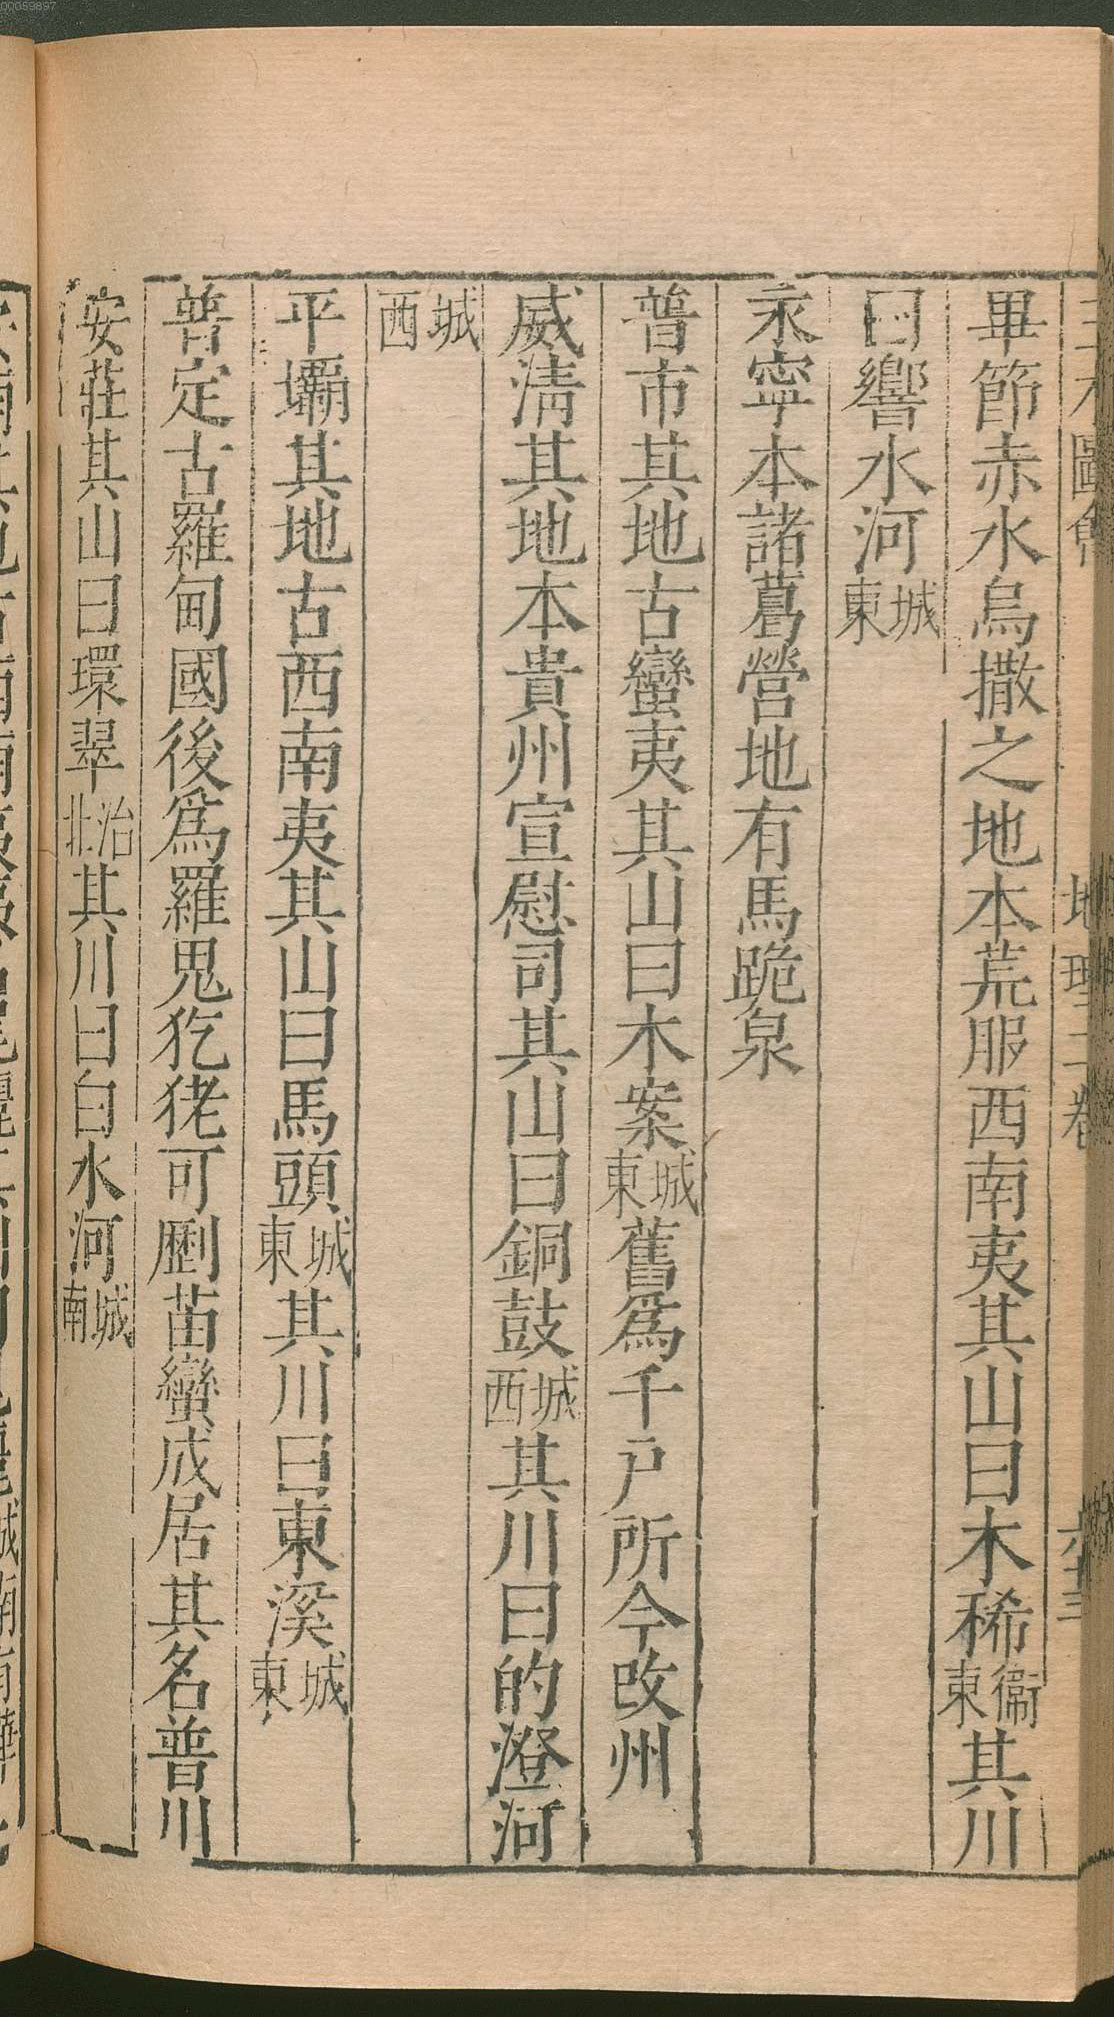 畢節赤水烏撒之地本荒服西南夷其山曰木稀衞東其川
曰響水河城東
永寧本諸葛營地有馬跪泉
普市其地古蠻夷其山曰木案城東舊爲千戶所今改州
威淸其地本貴州宣慰司其山曰銅鼓城西其川曰的澄河
城西
平壩其地古西南夷其山曰馬頭城東其川曰東溪城東
普定古羅甸國後爲羅鬼犵狫可劚苗蠻戍居其名普川
安莊其山曰環翠治北其川曰白水河城南
00059897